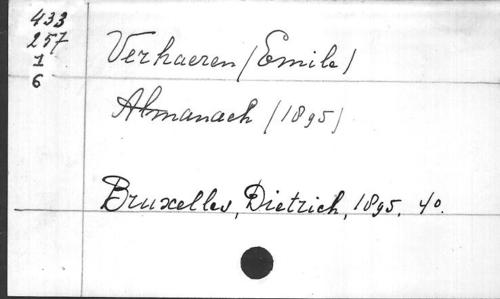 433
257
1
6
Verhaeren (Emile)
Almanach (1895)
Bruxelles, Dietrich, 1895. 4o.